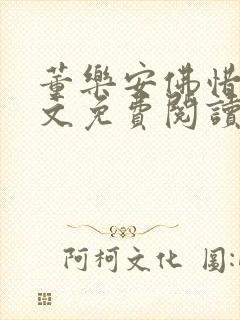 董樂安佛惜
文免費閱讀
阿柯文化 圖: